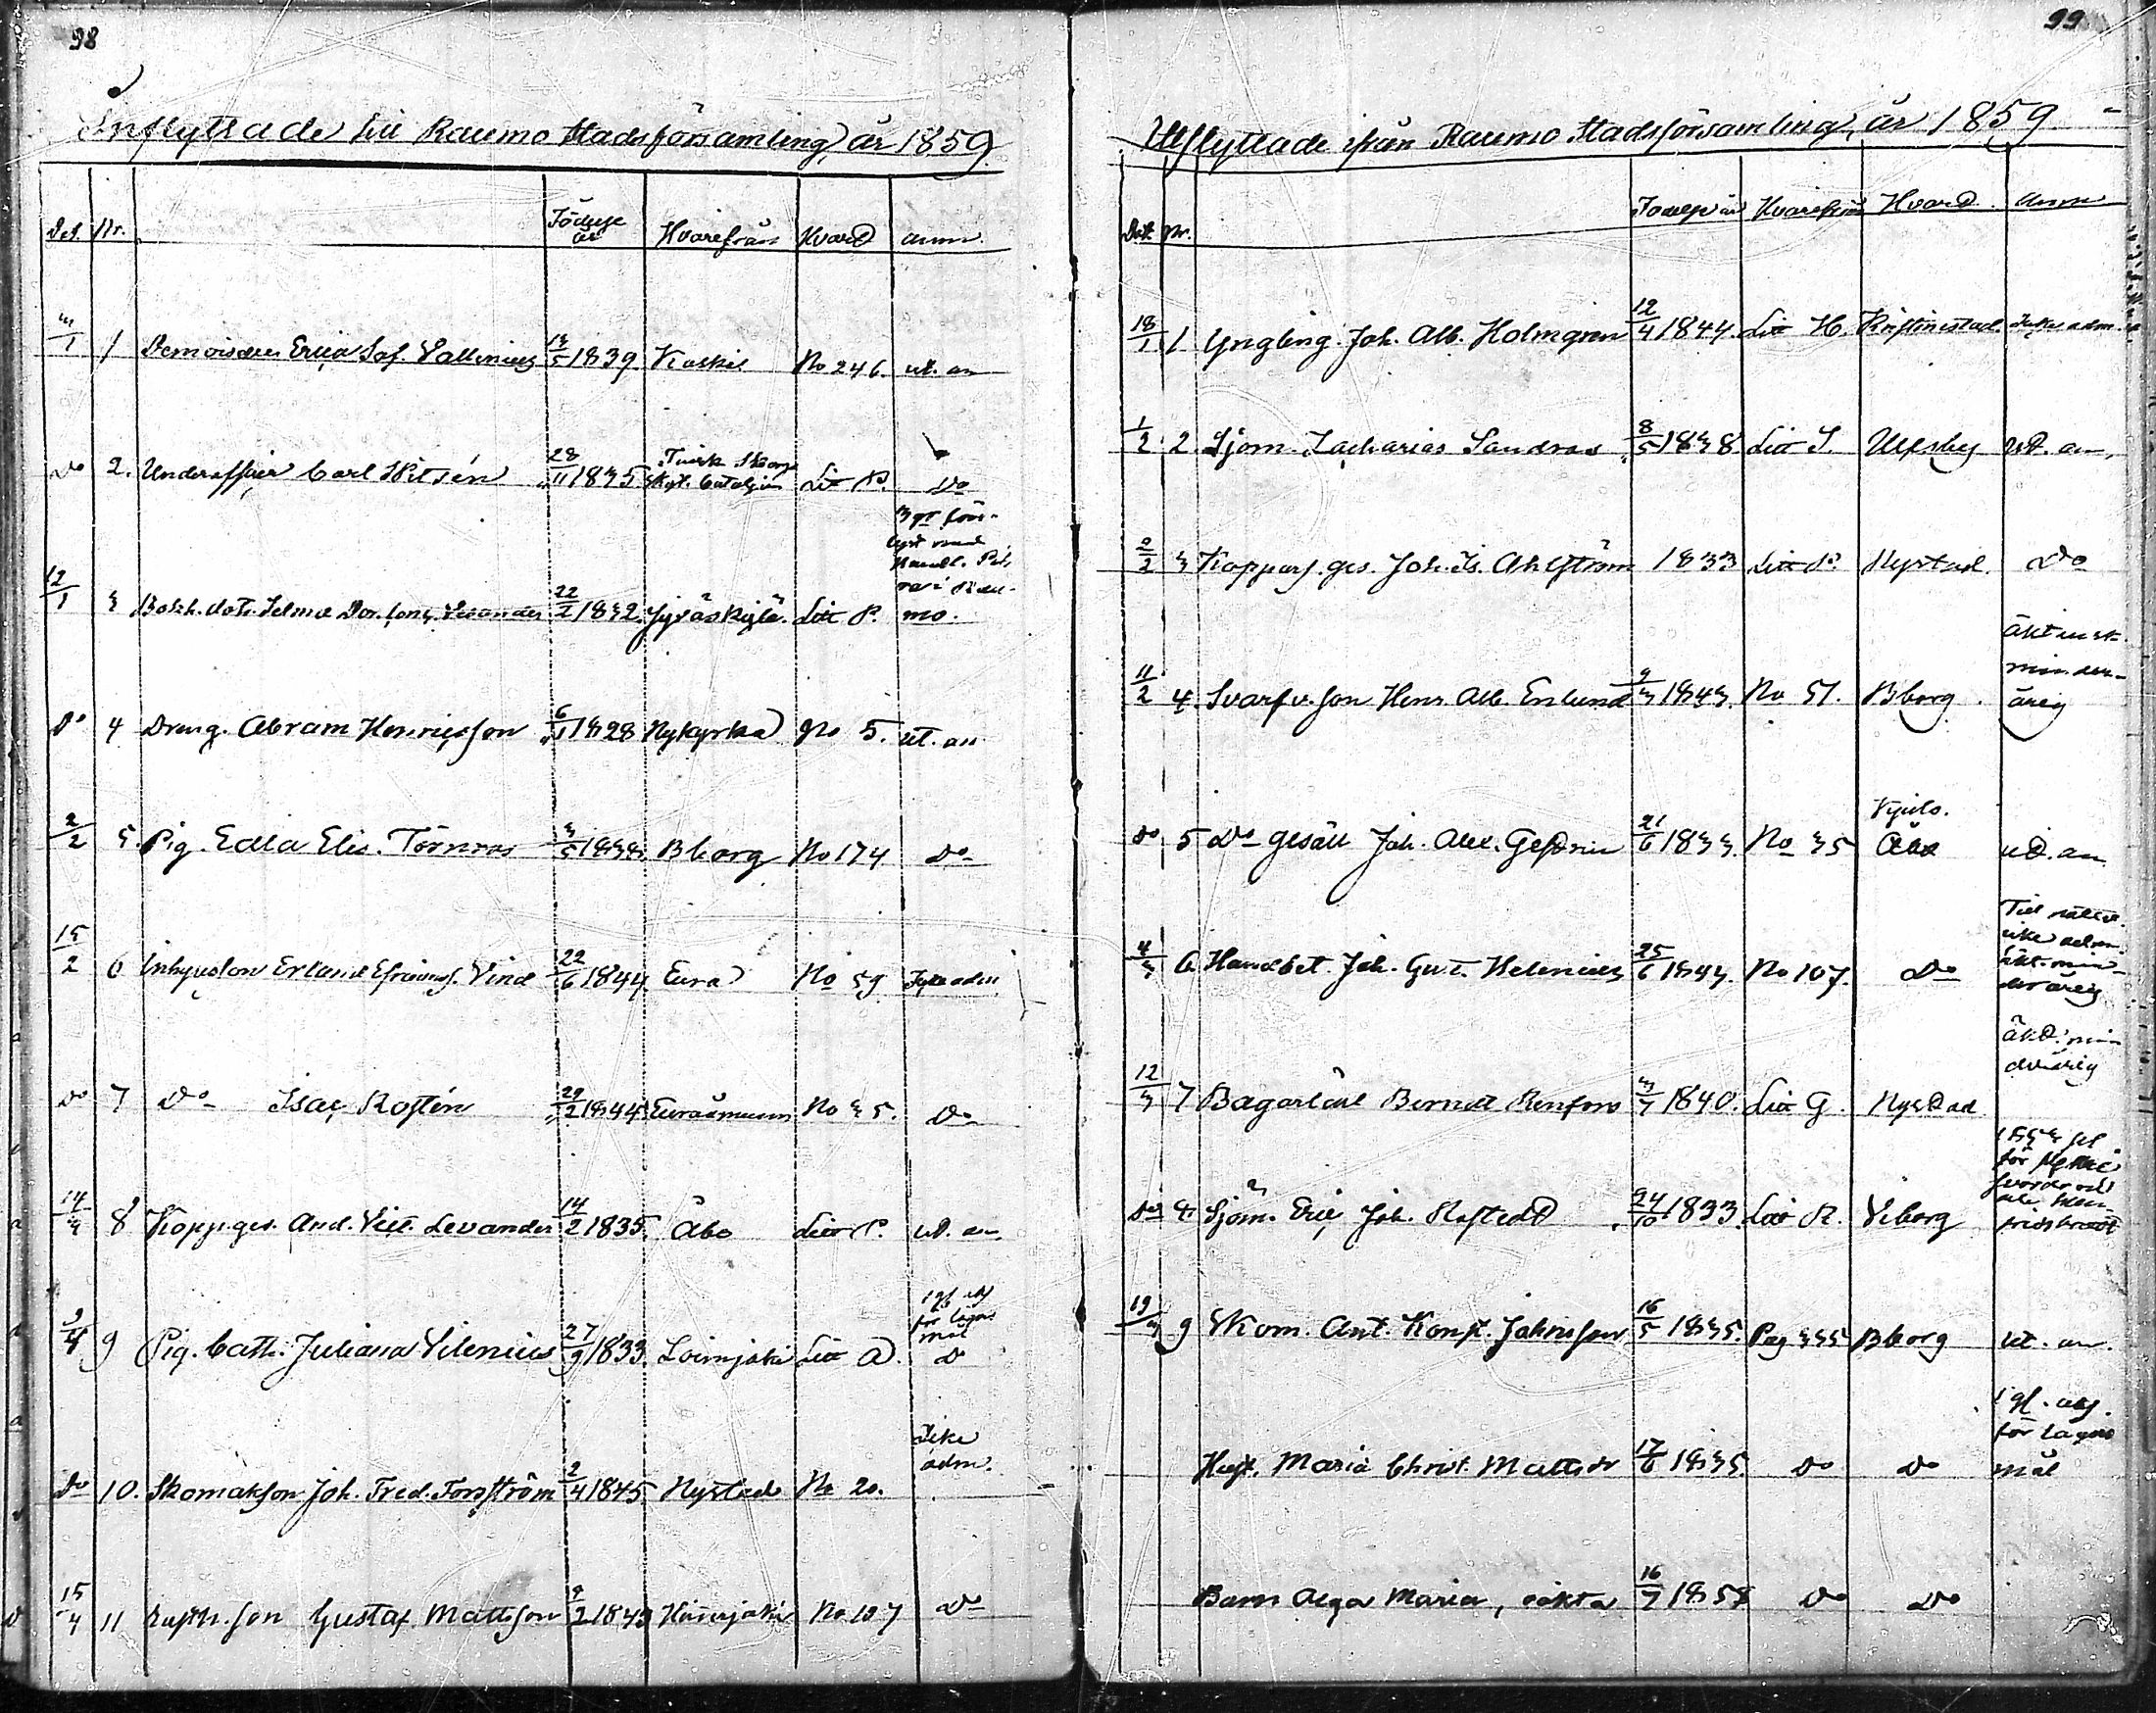 98
Inflyttade till Raumo Stadsförsamling, år 1859
Dat. Nr. Födelse år Hvarifrån Hvart anm.
3/1 1 Demoiselle Erica Sof. Vallenius 13/5 1839. Kaskö No 246. ut. an
Do 2. Underofficer Carl Hitsén 28/11 1835 Skarpskyt. bataljon Litt P. Do
12/1 3 Bokh. dotr. Selma Dor. 22/2 1832. Jyväskylä. Litt P. mo.
Do 4 Dreng. Abram Henricsson 6/1 1828 Nykyrka No 5. ut. an
2/2 5. Pig. Edla Elis. Törnroos 3/5 1838. Bborg No 174 Do
15/2 6 Inhyseson Erland Efraimss. Vind 22/6 1844. Eura No 59 Icke adm
Do 7 Do Isac Rostén 29/2 1844. Euraåminne No 35. Do
14/3 8 Kopp. ges. And. Vict. Levander 14/2 1835. Åbo Litt P. ut. an
9/4 9 Pig. Cath. Juliana Vilenius 27/9 1833. Loimjoki Litt A. 1 gf. afs. för lägersmål Do
Do 10. Skomakson Joh. Fred. Forsström 2/4 1845 Nystad No 20. Icke adm.
15/4 11 Gustaf Mattsson 9/2 1843 Hinnerjoki No 107 Do
99
Utflyttade ifrån Raumo Stadsförsamling, år 1859.
Dat. Nr. Födelse år Hvarifrån Hvart. anm
18/1 1 Yngling. Joh. Alb. Holmgren 12/4 1844. Litt H. Kristinestad Icke adm.
1/2 2. Sjöm. Zacharias Sandroos 8/5 1838 Litt S. Ulfsby ut. an.
2/2 3 Koppars. ges. Joh. Is. Ahlström 1833 Litt P. Nystad. Do
11/2 4. Svarfv. son Henr. Alb. Enlund 9/3 1843. No 51. Bborg. äkt minderårig
Do 5 Do gesäll Joh. Alex. 21/6 1833. No 35 Åbo ut. an
4/3 6 Handbet. Joh. Gust. Helenius 25/6 1843. No 107. Do icke adm. äkt. minderårig
12/3 7 Bagarlärl Berndt Renfors 3/7 1840. Litt G. Nystad äkt. minderårig
Do 8 Sjöm. Eric Joh. Rostedt 24/10 1833. Litt R. Viborg
19/3 9 Skom. Ant. Konst. Johnsson 16/5 1835. Pag 335 Bborg ut. an.
Hust. Maria Christ. Mattsdr 17/6 1835 Do Do 1 gf. afs. för lägersmål
Barn Alga Maria, oäkta 16/7 1858 Do Do